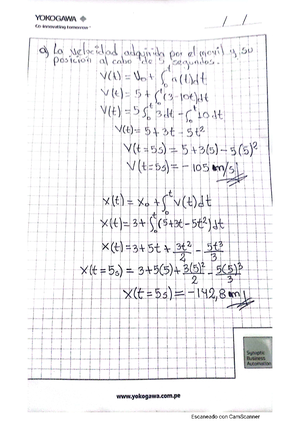 YOKOGAWA
Co-innovating tomorrow
/ /
a) La velocidad adquirida por el movil y su
posición al cabo de 5 segundos.
V(t) = V₀ + ∫₀ᵗ a(t)dt
V(t) = 5 + ∫₀ᵗ (3-10t)dt
V(t) = 5 ∫₀ᵗ 3.dt - ∫₀ᵗ 10.dt
V(t) = 5 + 3t - 5t²
V(t=5s) = 5 + 3(5) - 5(5)²
V(t=5s) = -105 m/s
x(t) = x₀ + ∫₀ᵗ V(t)dt
x(t) = 3 + ∫₀ᵗ (5+3t-5t²)dt
x(t) = 3 + 5t + 3t²/2 - 5t³/3
x(t=5s) = 3 + 5(5) + 3(5)²/2 - 5(5)³/3
x(t=5s) = -142,8 m
Synaptic
Business
Automation
www.yokogawa.com.pe
Escaneado con CamScanner